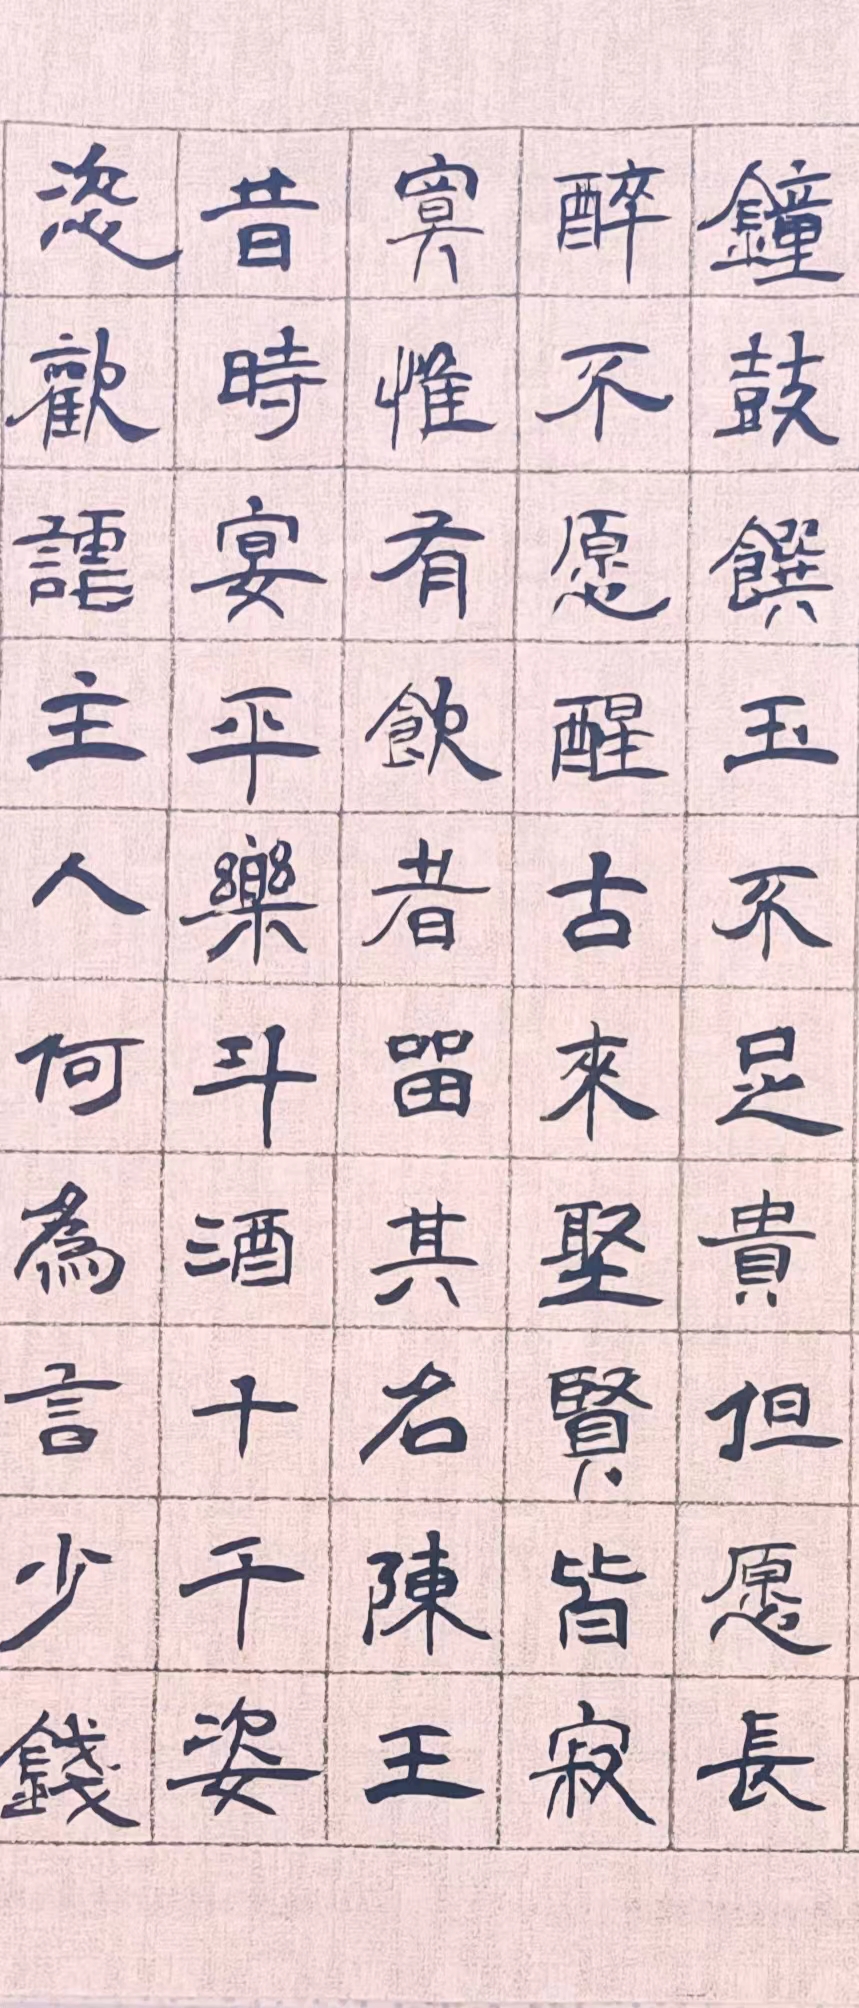 鐘鼓饌玉不足貴但愿長
醉不愿醒古來聖賢皆寂
寞惟有飲者留其名陳王
昔時宴平樂斗酒十千姿
恣歡謔主人何為言少錢